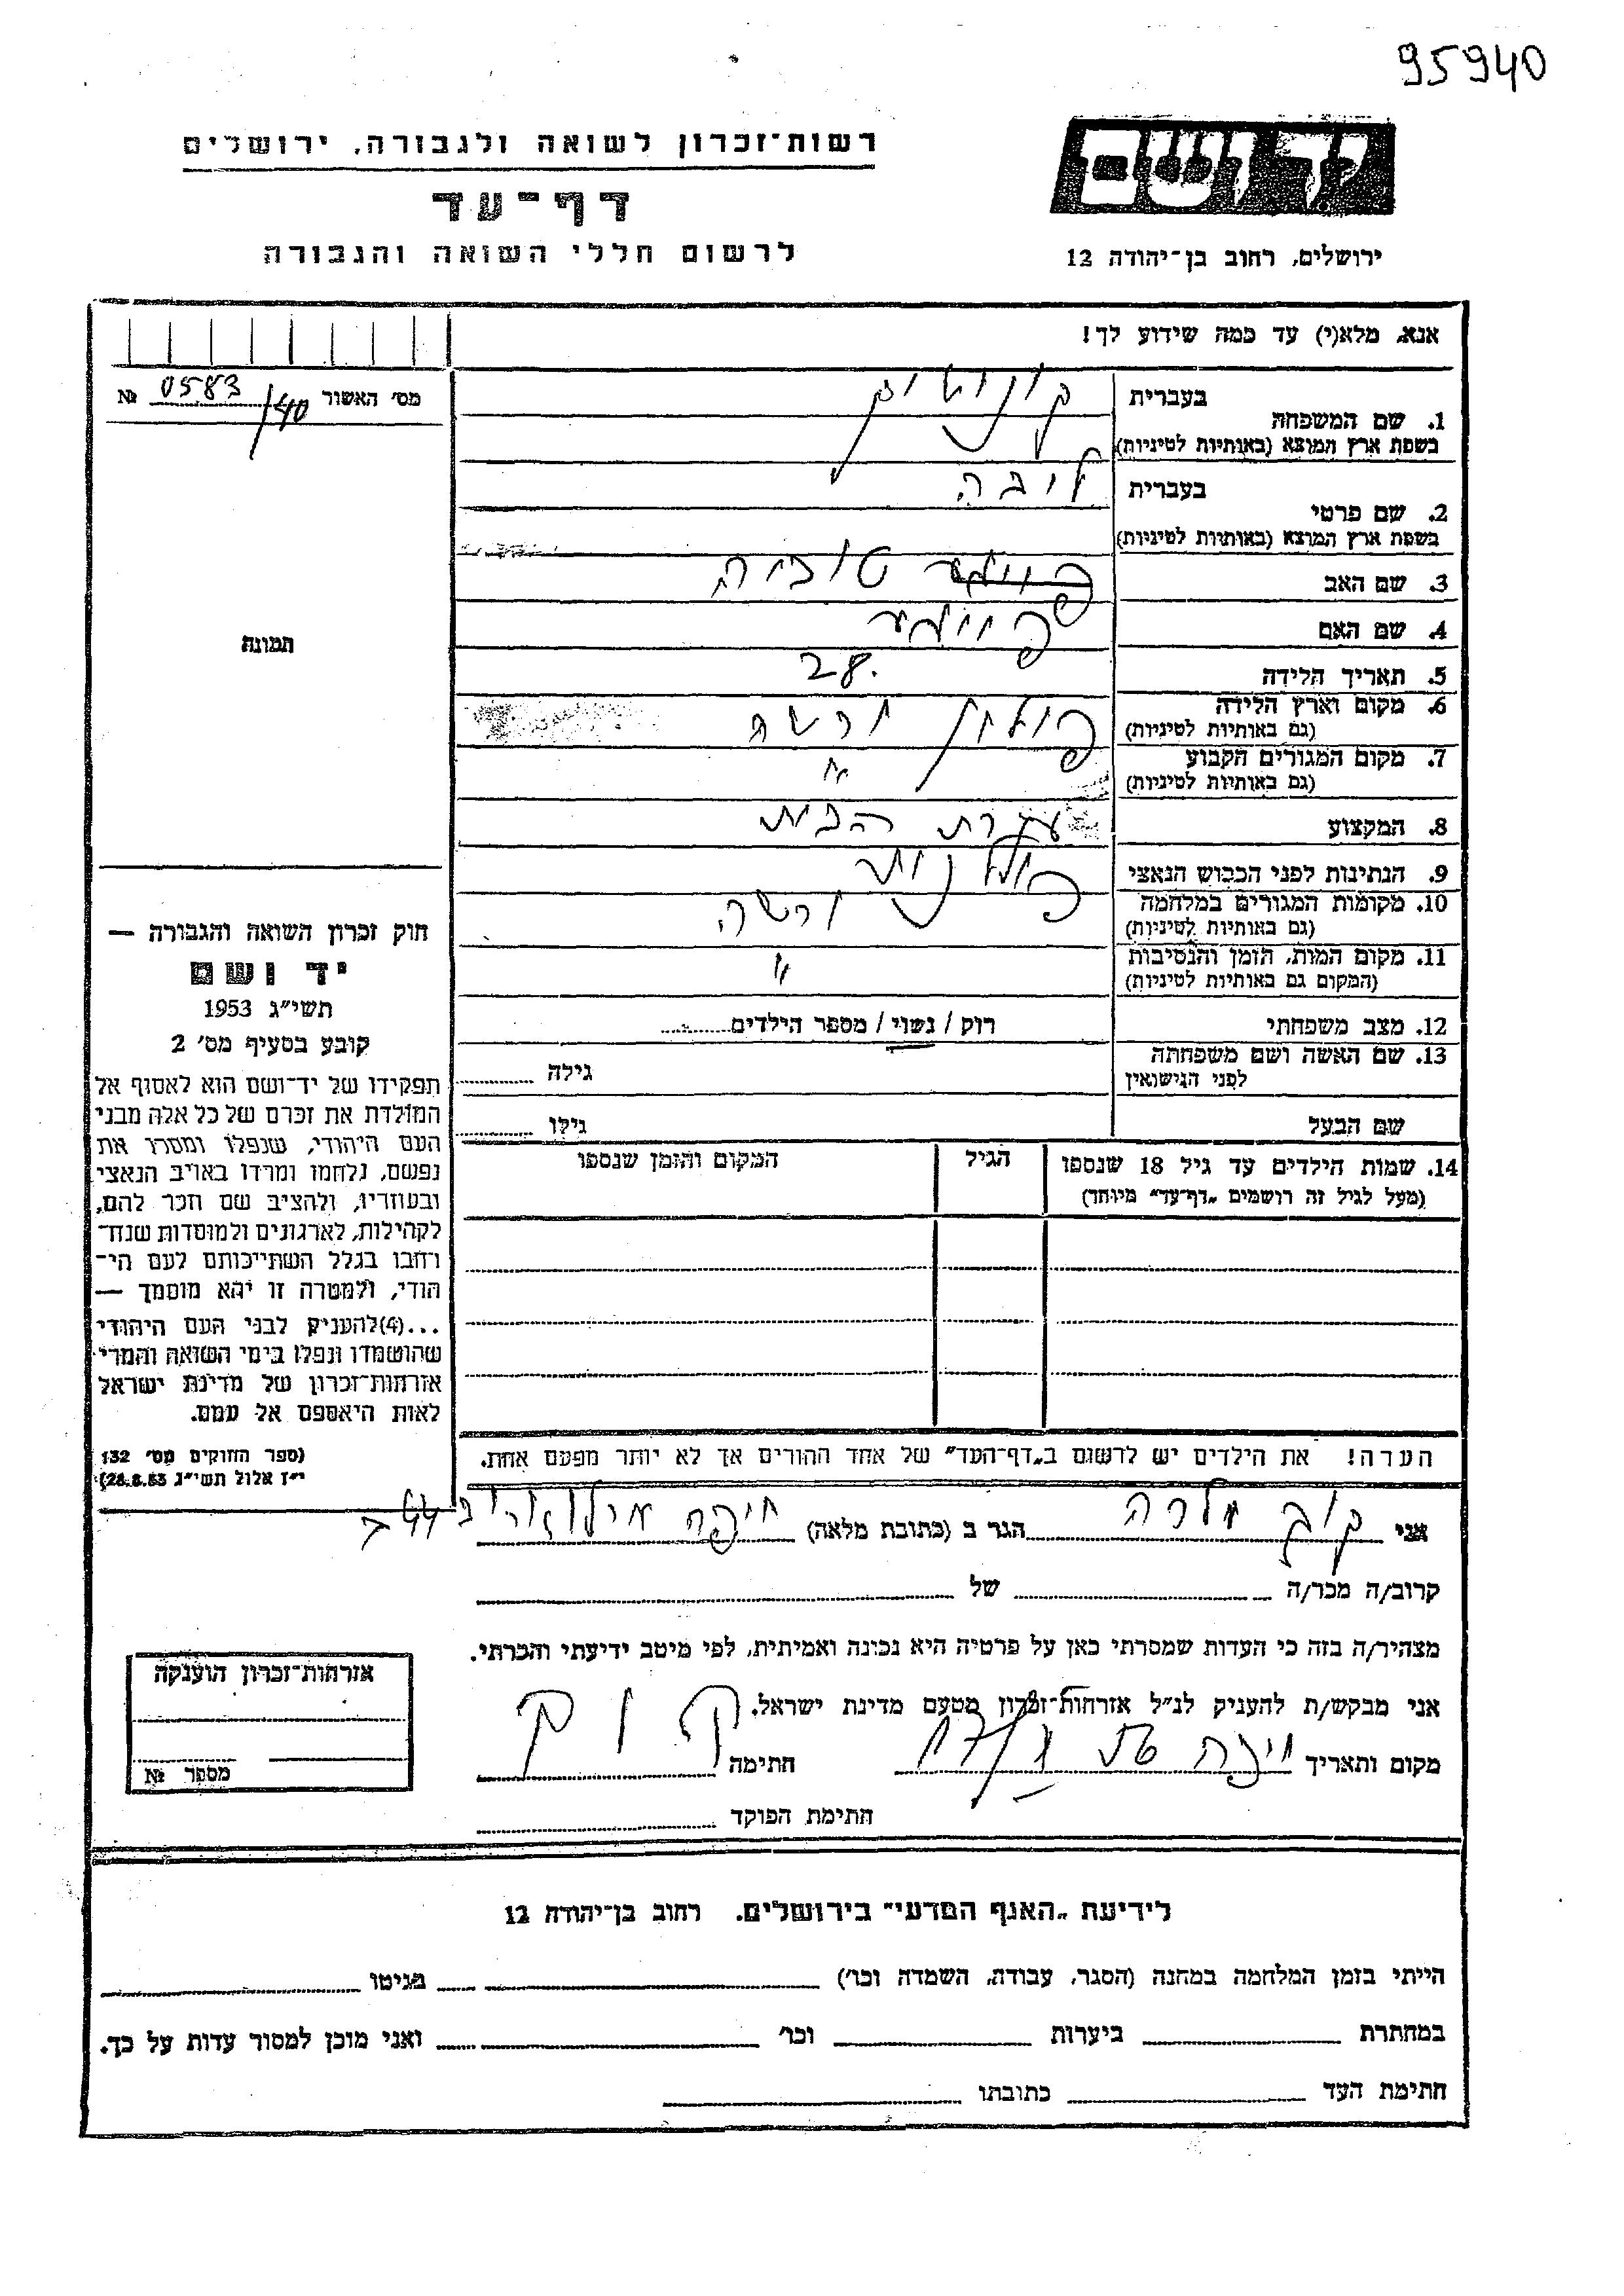 95940
יד ושם
רשות־זכרון לשואה ולגבורה, ירושלים
דף־עד
לרשום חללי השואה והגבורה
ירושלים, רחוב בן־יהודה 12
אנא, מלא(י) עד כמה שידוע לך!
מס' האשור № 0583/40
1. שם המשפחה בעברית
בשפת ארץ המוצא (באותיות לטיניות)
2. שם פרטי בעברית ליבה
בשפת ארץ המוצא (באותיות לטיניות)
3. שם האב טוביה
4. שם האם
5. תאריך הלידה 28.
6. מקום וארץ הלידה פולין ורשה
(גם באותיות לטיניות)
7. מקום המגורים הקבוע "
(גם באותיות לטיניות)
8. המקצוע עקרת הבית
9. הנתינות לפני הכבוש הנאצי פולנית
10. מקומות המגורים במלחמה ורשה
(גם באותיות לטיניות)
11. מקום המות, הזמן והנסיבות "
(המקום גם באותיות לטיניות)
12. מצב משפחתי רוק / נשוי / מספר הילדים
13. שם האשה ושם משפחתה גילה
לפני הנישואין
שם הבעל גילו
14. שמות הילדים עד גיל 18 שנספו הגיל המקום והזמן שנספו
(מעל לגיל זה רושמים „דף־עד" מיוחד)
הערה! את הילדים יש לרשום ב„דף־העד" של אחד ההורים אך לא יותר מפעם אחת.
תמונה
חוק זכרון השואה והגבורה —
יד ושם
תשי"ג 1953
קובע בסעיף מס' 2
תפקידו של יד־ושם הוא לאסוף אל
המולדת את זכרם של כל אלה מבני
העם היהודי, שנפלו ומסרו את
נפשם, נלחמו ומרדו באויב הנאצי
ובעוזריו, ולהציב שם וזכר להם,
לקהילות, לארגונים ולמוסדות שנח־
רחבו בגלל השתייכותם לעם הי־
הודי, ולמטרה זו יהא מוסמך —
...(4)להעניק לבני העם היהודי
שהושמדו ונפלו בימי השואה והמרי
אזרחות־זכרון של מדינת ישראל
לאות היאספם אל עמם.
(ספר החוקים מס' 132
י"ז אלול תשי"ג 28.8.53)
אני הגר ב (כתובת מלאה) חיפה 44
קרוב/ה מכר/ה של
מצהיר/ה בזה כי העדות שמסרתי כאן על פרטיה היא נכונה ואמיתית, לפי מיטב ידיעתי והכרתי.
אני מבקש/ת להעניק לנ"ל אזרחות־זכרון מטעם מדינת ישראל.
מקום ותאריך חתימה
חתימת הפוקד
אזרחות־זכרון הוענקה
מספר №
לידיעת „האגף המדעי" בירושלים. רחוב בן־יהודה 12
הייתי בזמן המלחמה במחנה (הסגר, עבודה, השמדה וכו') בגיטו
במחתרת ביערות וכו' ואני מוכן למסור עדות על כך.
חתימת העד כתובתו